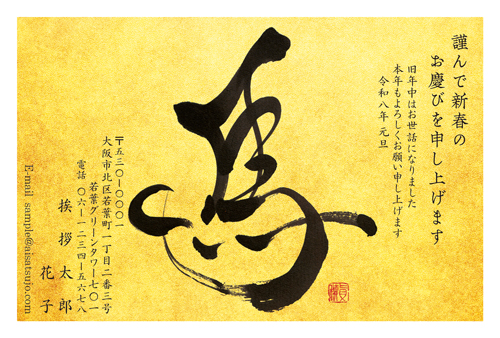 謹んで新春の
お慶びを申し上げます
旧年中はお世話になりました
本年もよろしくお願い申し上げます
令和八年 元旦
馬
〒五三〇-〇〇〇一
大阪市北区若葉町一丁目二番三号
若葉グリーンタワー七〇一
電話 〇六-一二三四-五六七八
挨拶 太郎
花子
E-mail sample@aisatsujo.com